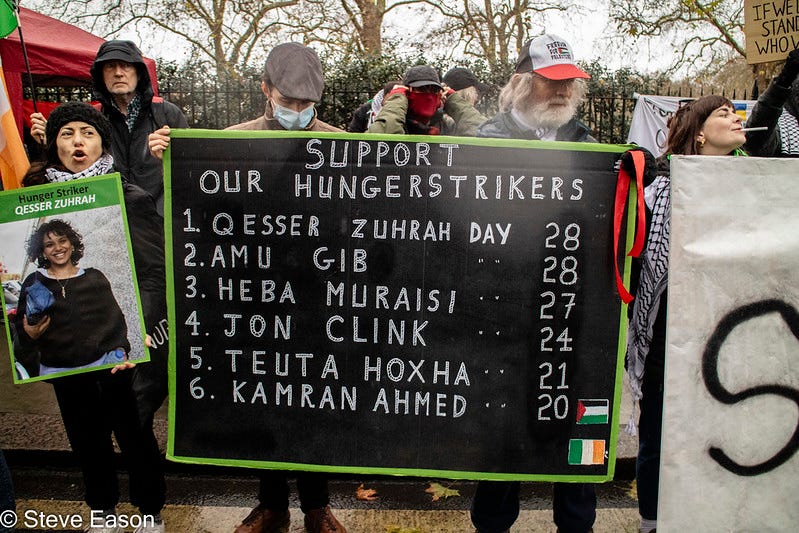 IF WE D
STAND
WHO W
SUPPORT
OUR HUNGERSTRIKERS
1. QESSER ZUHRAH DAY 28
2. AMU GIB " 28
3. HEBA MURAISI " 27
4. JON CLINK " 24
5. TEUTA HOXHA " 21
6. KAMRAN AHMED " 20
Hunger Striker
QESSER ZUHRAH
S
© Steve Eason